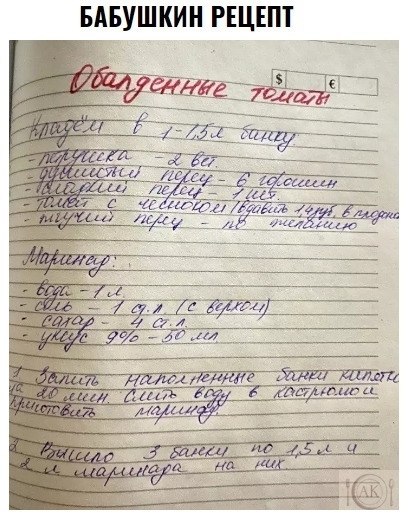 БАБУШКИН РЕЦЕПТ
$ €
Обалденные томаты
Кладём в 1-1,5л банку
- петрушка - 2 вет.
- душистый перец - 6 горошин
- сладкий перец - 1 шт.
- томат с чесноком (вдавить 1 зуб. в плодоно
- жгучий перец - по желанию
Маринад:
- вода - 1 л
- соль - 1 ст.л. (с верхом)
- сахар - 4 ст.л.
- уксус 9% - 50 мл
1 Залить наполненные банки кипятко
на 20 мин. Слить воду в кастрюлю и
приготовить маринад.
2 Вышло 3 банки по 1,5 л и
2 л маринада на них
АК